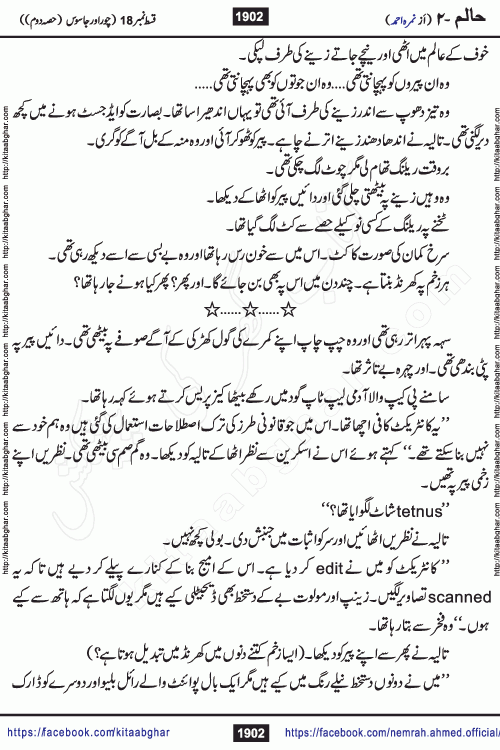 حالم -۲ (از نمرہ احمد) 1902 قسط نمبر 18 (چور اور جاسوس (حصہ دوم))
خوف کے عالم میں اٹھی اور نیچے جاتے زینے کی طرف لپکی۔
وہ ان پیروں کو پہچانتی تھی....وہ ان جوتوں کو بھی پہچانتی تھی.....
وہ تیز دھوپ سے اندر زینے کی طرف آئی تھی تو یہاں اندھیرا سا تھا۔ بصارت کو ایڈجسٹ ہونے میں کچھ
دیر لگنی تھی۔ تالیہ نے اندھا دھند زینے اترنے چاہے۔ پیر کو ٹھوکر آئی اور وہ منہ کے بل آگے کو گری۔
بروقت ریلنگ تھام لی مگر چوٹ لگ چکی تھی۔
وہ وہیں زینے پہ بیٹھتی چلی گئی اور دائیں پیر کو اٹھا کے دیکھا۔
ٹخنے پہ ریلنگ کے کسی نوکیلے حصے سے کٹ لگ گیا تھا۔
سرخ کمان کی صورت کا کٹ۔ اس میں سے خون رس رہا تھا اور وہ بے بسی سے اسے دیکھ رہی تھی۔
ہر زخم پہ کھرنڈ بنتا ہے۔ چند دن میں اس پہ بھی بن جائے گا۔ اور پھر؟ پھر کیا ہونے جا رہا تھا؟
☆......☆......☆
سہ پہر اتر رہی تھی اور وہ چپ چاپ اپنے کمرے کی گول کھڑکی کے آگے صوفے پہ بیٹھی تھی۔ دائیں پیر پہ
پٹی بندھی تھی۔ اور چہرہ بے تاثر تھا۔
سامنے پی کیپ والا آدمی لیپ ٹاپ گود میں رکھے بیٹھا کیز پریس کرتے ہوئے کہہ رہا تھا۔
’’یہ کانٹریکٹ کافی اچھا تھا۔ اس میں جو قانونی طرز کی ترک اصطلاحات استعمال کی گئی ہیں وہ ہم خود سے
نہیں بنا سکتے تھے۔‘‘ کہتے ہوئے اس نے اسکرین سے نظر اٹھا کے تالیہ کو دیکھا۔ وہ گم صم سی بیٹھی تھی۔ نظریں اپنے
زخمی پیر پہ تھیں۔
’’tetnus شاٹ لگوایا تھا؟‘‘
تالیہ نے نظریں اٹھائیں اور سر کو اثبات میں جنبش دی۔ بولی کچھ نہیں۔
’’کانٹریکٹ کو میں نے edit کر دیا ہے۔ اس کے امیج بنا کے کنارے پیلے کر دیے ہیں تا کہ یہ
scanned تصاویر لگیں۔ زینپ اور مولوت بے کے دستخط بھی ڈیجیٹلی کیے ہیں مگر یوں لگتا ہے کہ ہاتھ سے کیے
ہوں۔‘‘ وہ فخر سے بتا رہا تھا۔
تالیہ نے پھر سے اپنے پیر کو دیکھا۔ (ایسا زخم کتنے دنوں میں کھرنڈ میں تبدیل ہوتا ہے؟)
’’میں نے دونوں دستخط نیلے رنگ میں کیے ہیں مگر ایک بال پوائنٹ والے رائل بلیو اور دوسرے کو ڈارک
https://facebook.com/kitaabghar 1902 https://facebook.com/nemrah.ahmed.official/
http://kitaabghar.com
http://kitaabghar.com